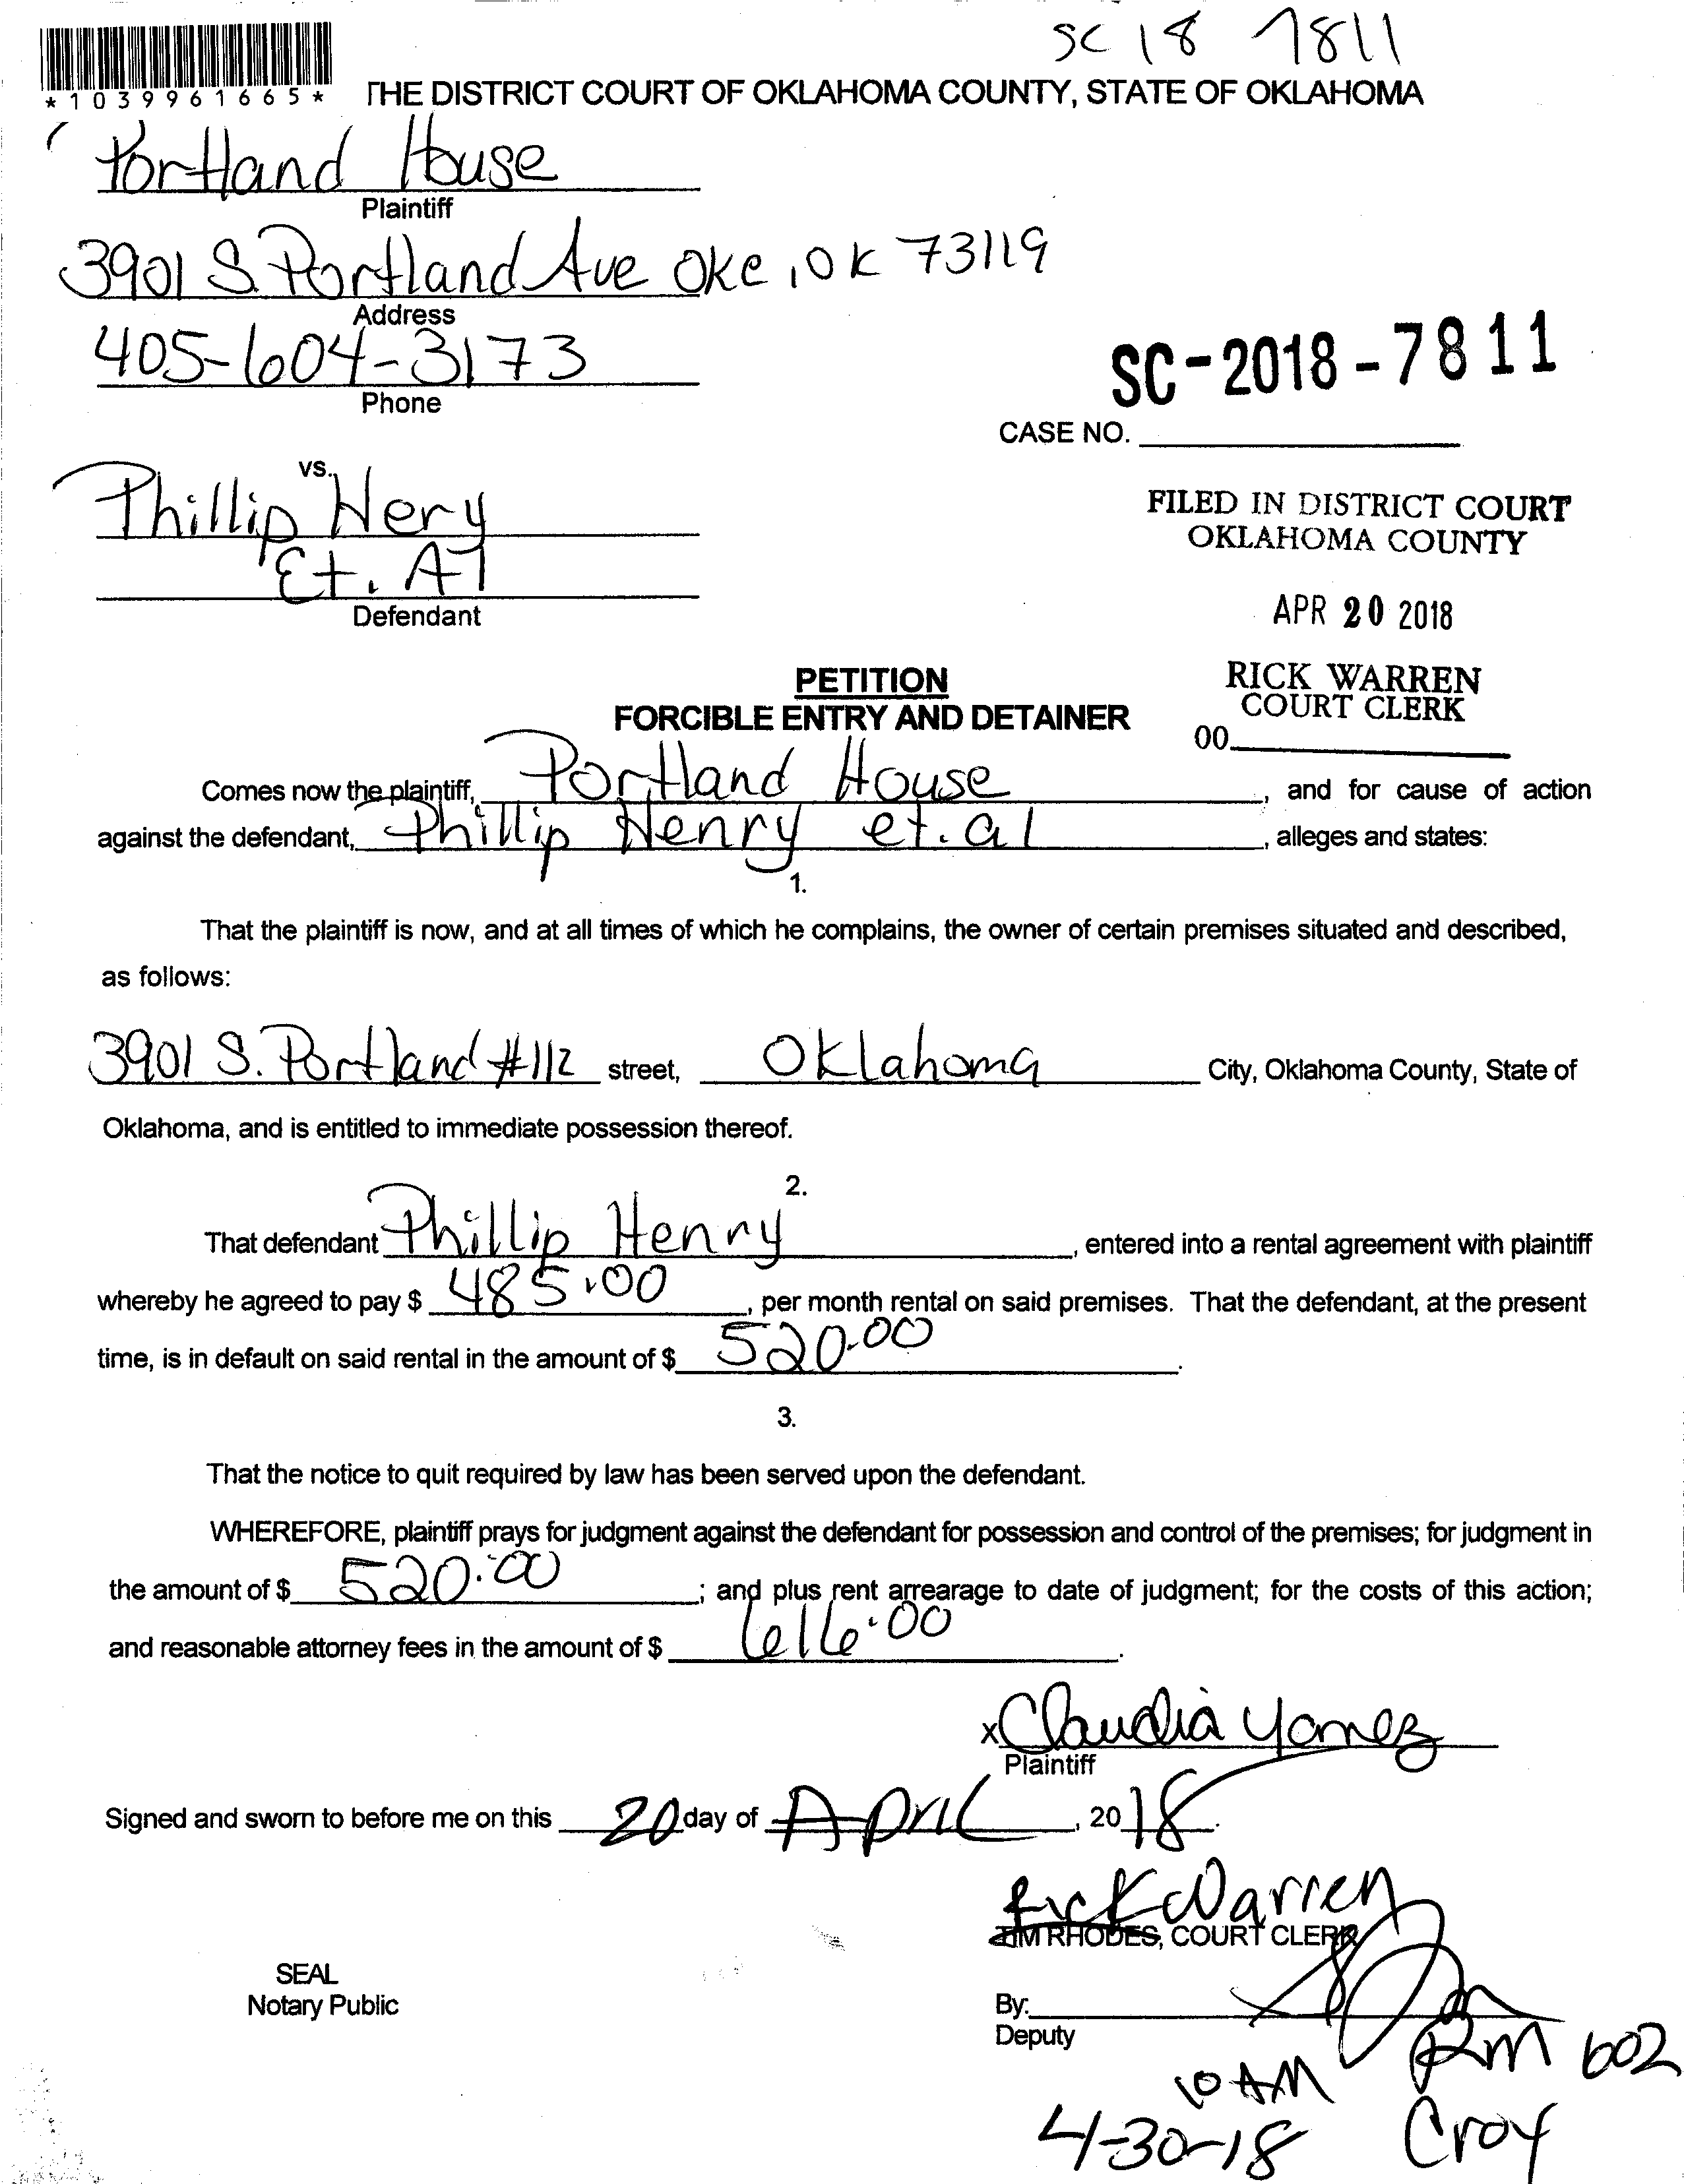 SC 18 7811
*1039961665*
THE DISTRICT COURT OF OKLAHOMA COUNTY, STATE OF OKLAHOMA
Portland House
Plaintiff
3901 S. Portland Ave OKC, OK 73119
Address
405-604-3173
Phone
SC-2018-7811
CASE NO.
vs.
Phillip Hery
Et. Al
Defendant
FILED IN DISTRICT COURT
OKLAHOMA COUNTY
APR 20 2018
RICK WARREN
COURT CLERK
00
PETITION
FORCIBLE ENTRY AND DETAINER
Comes now the plaintiff, Portland House, and for cause of action
against the defendant, Phillip Henry et. al, alleges and states:
1.
That the plaintiff is now, and at all times of which he complains, the owner of certain premises situated and described,
as follows:
3901 S. Portland #112 street, Oklahoma City, Oklahoma County, State of
Oklahoma, and is entitled to immediate possession thereof.
2.
That defendant Phillip Henry, entered into a rental agreement with plaintiff
whereby he agreed to pay $ 485.00, per month rental on said premises. That the defendant, at the present
time, is in default on said rental in the amount of $ 520.00.
3.
That the notice to quit required by law has been served upon the defendant.
WHEREFORE, plaintiff prays for judgment against the defendant for possession and control of the premises; for judgment in
the amount of $ 520.00; and plus rent arrearage to date of judgment; for the costs of this action;
and reasonable attorney fees in the amount of $ 616.00.
x Claudia Yanez
Plaintiff
Signed and sworn to before me on this 20 day of April, 2018.
Rick Warren
TIM RHODES, COURT CLERK
SEAL
Notary Public
By:
Deputy
10 AM Rm 602
4-30-18 Croy